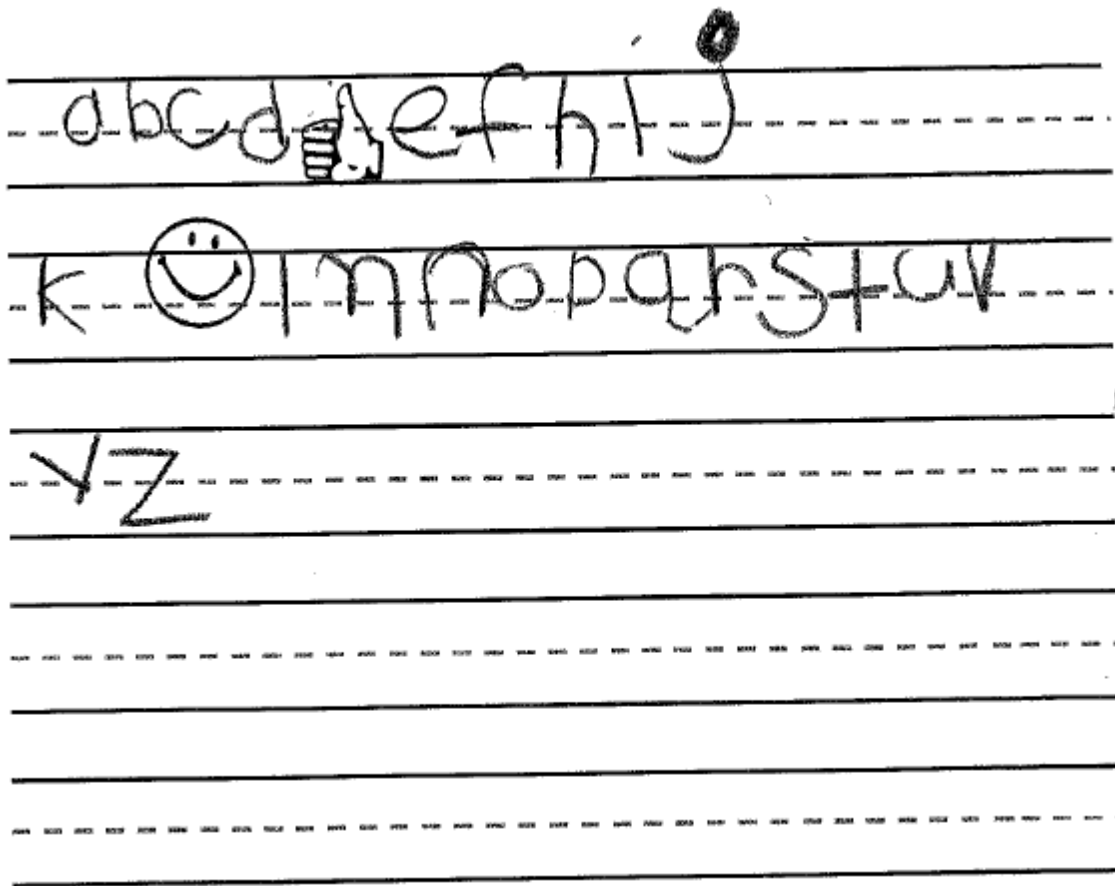 abcd efhij
k lmnopqrstuv
yz